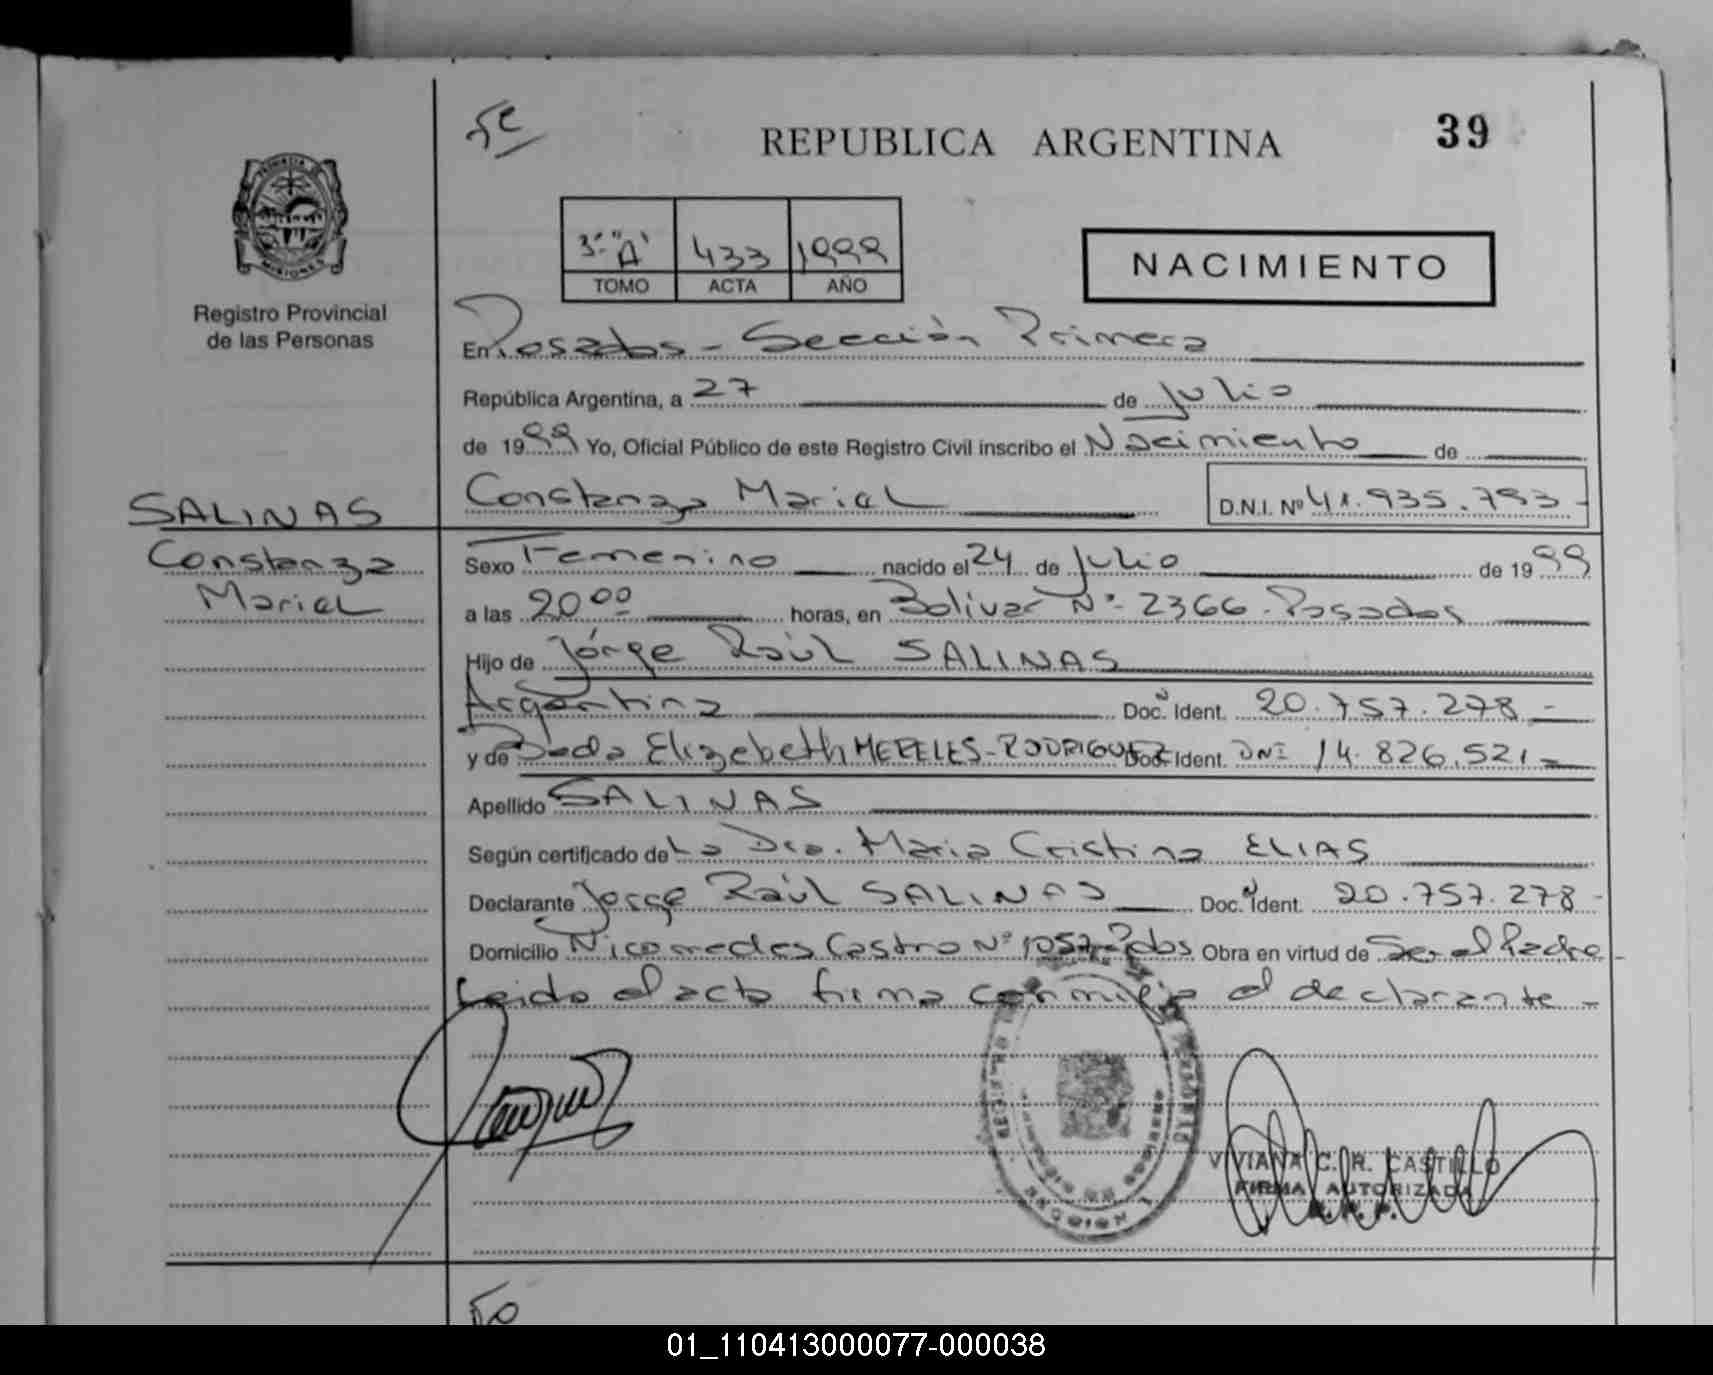 5e
REPUBLICA ARGENTINA
39
PROVINCIA DE
MISIONES
Registro Provincial
de las Personas
3º "A" 433 1999
TOMO ACTA AÑO
NACIMIENTO
En Posadas - Sección Primera
República Argentina, a 27 de Julio
de 1999 Yo, Oficial Público de este Registro Civil inscribo el Nacimiento de
SALINAS
Constanza Mariel
Constanza Mariel D.N.I. Nº 41.935.793-
Sexo Femenino nacido el 24 de Julio de 1999
a las 20 00 horas, en Bolivar Nº- 2366 - Posadas
Hijo de Jorge Raúl SALINAS
Argentina Doc. Ident. 20.757.278-
y de Elizabeth MERELES-RODRIGUEZ Doc. Ident. DNI 14.826.521-
Apellido SALINAS
Según certificado de La Dra. Maria Cristina ELIAS
Declarante Jorge Raúl SALINAS Doc. Ident. 20.757.278-
Domicilio Nicomedes Castro Nº 1057-Pdas Obra en virtud de Ser el Padre
Leida el acta firma conmigo el declarante -
VIVIANA C. R. CASTILLO
FIRMA AUTORIZADA
R. P. P.
01_110413000077-000038